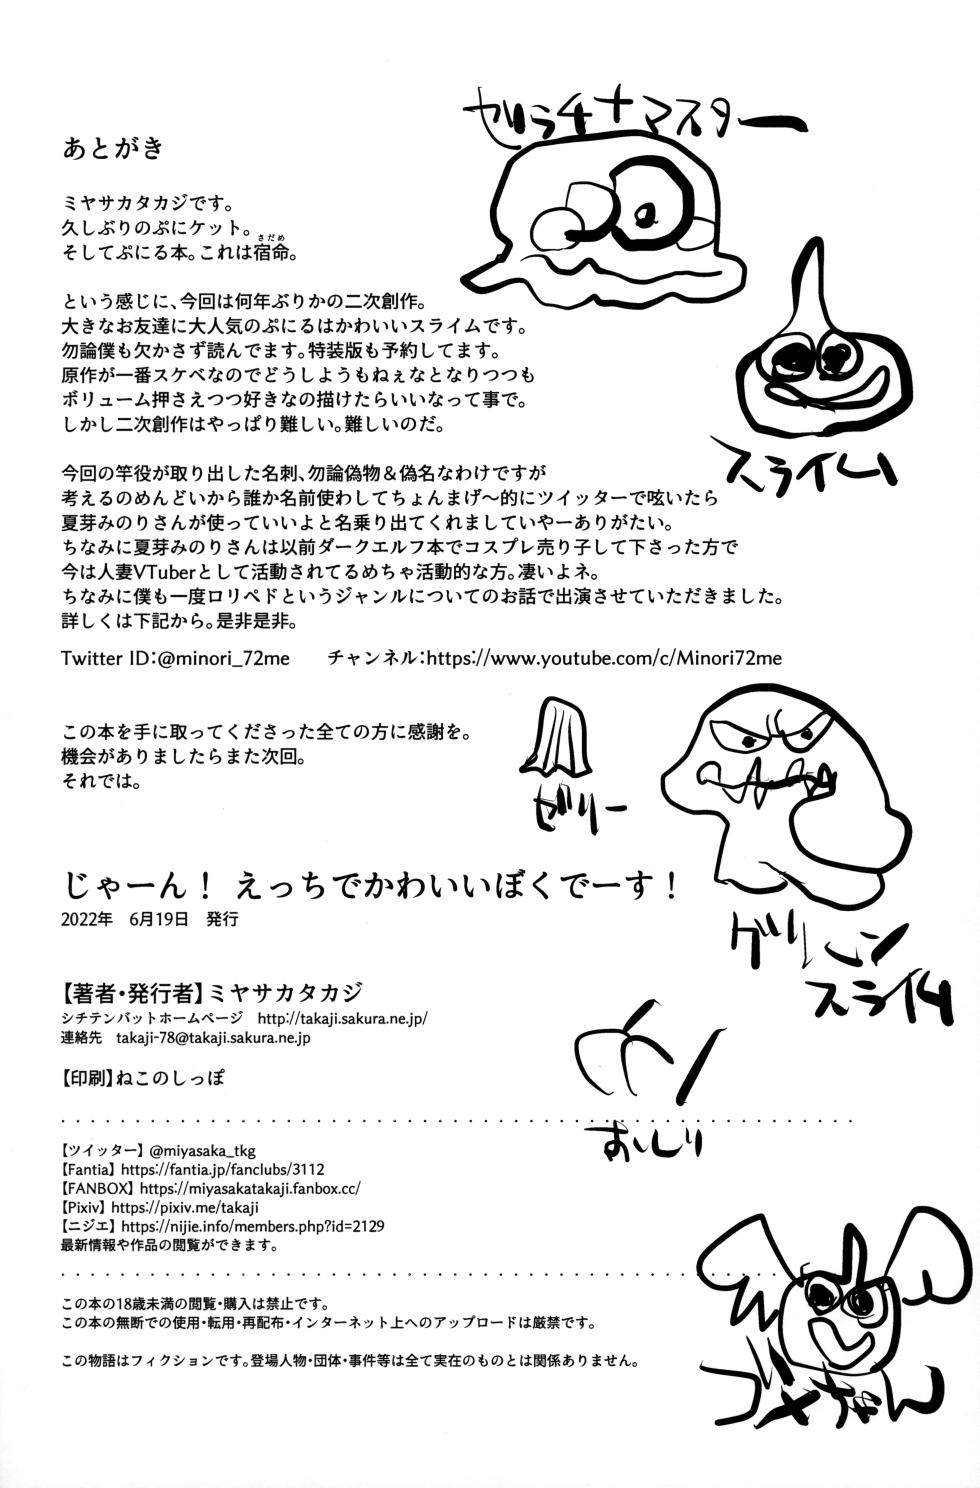 ゼラチナマスター
あとがき
ミヤサカタカジです。
久しぶりのぷにケット。
さだめ
そしてぷにる本。これは宿命。
という感じに、今回は何年ぶりかの二次創作。
大きなお友達に大人気のぷにるはかわいいスライムです。
勿論僕も欠かさず読んでます。特装版も予約してます。
原作が一番スケベなのでどうしようもねぇなとなりつつも
ボリューム押さえつつ好きなの描けたらいいなって事で。
しかし二次創作はやっぱり難しい。難しいのだ。
スライム
今回の竿役が取り出した名刺、勿論偽物＆偽名なわけですが
考えるのめんどいから誰か名前使わしてちょんまげ～的にツイッターで呟いたら
夏芽みのりさんが使っていいよと名乗り出てくれましていやーありがたい。
ちなみに夏芽みのりさんは以前ダークエルフ本でコスプレ売り子して下さった方で
今は人妻VTuberとして活動されてるめちゃ活動的な方。凄いよネ。
ちなみに僕も一度ロリペドというジャンルについてのお話で出演させていただきました。
詳しくは下記から。是非是非。
Twitter ID：@minori_72me　　チャンネル：https://www.youtube.com/c/Minori72me
この本を手に取ってくださった全ての方に感謝を。
機会がありましたらまた次回。
それでは。
ゼリー
じゃーん！ えっちでかわいいぼくでーす！
2022年　6月19日　発行
グリーン
スライム
【著者・発行者】ミヤサカタカジ
シチテンバットホームページ　http://takaji.sakura.ne.jp/
連絡先　takaji-78@takaji.sakura.ne.jp
【印刷】ねこのしっぽ
おいしい
【ツイッター】 @miyasaka_tkg
【Fantia】 https://fantia.jp/fanclubs/3112
【FANBOX】 https://miyasakatakaji.fanbox.cc/
【Pixiv】 https://pixiv.me/takaji
【ニジエ】 https://nijie.info/members.php?id=2129
最新情報や作品の閲覧ができます。
この本の18歳未満の閲覧・購入は禁止です。
この本の無断での使用・転用・再配布・インターネット上へのアップロードは厳禁です。
この物語はフィクションです。登場人物・団体・事件等は全て実在のものとは関係ありません。
ゴメちゃん